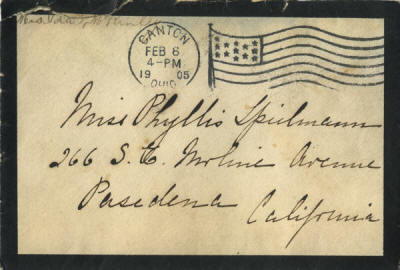 CANTON
FEB 6
4-PM
1905
OHIO
Miss Phyllis Spielmann
266 S. E. Moline Avenue
Pasedena
California